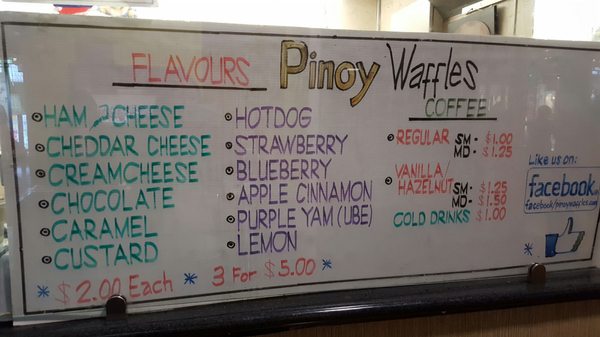 Pinoy Waffles
FLAVOURS
HAM & CHEESE
CHEDDAR CHEESE
CREAMCHEESE
CHOCOLATE
CARAMEL
CUSTARD
HOTDOG
STRAWBERRY
BLUEBERRY
APPLE CINNAMON
PURPLE YAM (UBE)
LEMON
$2.00 Each * 3 For $5.00 *
COFFEE
REGULAR SM - $1.00
MD - $1.25
VANILLA/
HAZELNUT SM - $1.25
MD - $1.50
COLD DRINKS $1.00
Like us on:
facebook
facebook/pinoywaffles.com